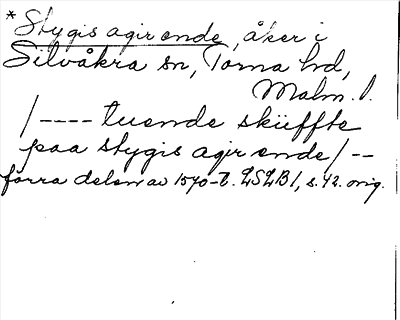 * Stygis agir ende, åker i
Silvåkra sn, Torna hd,
Malm. l.
/---- tuende sküffte
paa stygis agir ende/--
förra delen av 1570-t. LSLB1, s. 42. orig.